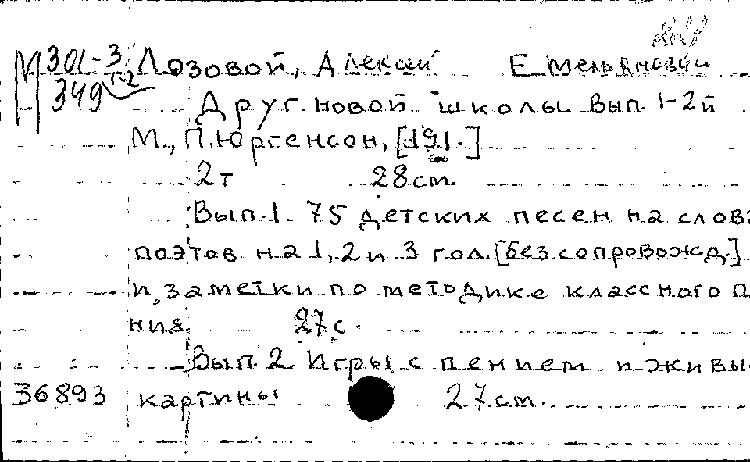 М 301-3 Лозовой, Алексей Емельянович
349 1-2 Друг новой школы Вып. 1-2й
М., П. Юргенсон, [191.]
2т 28см.
Вып. 1. 75 детских песен на слова
поэтов на 1, 2 и 3 гол. [без сопровожд.]
и заметки по методике классного п
ния. 27с.
Вып. 2 Игры с пением и живы
36893 картины 27см.